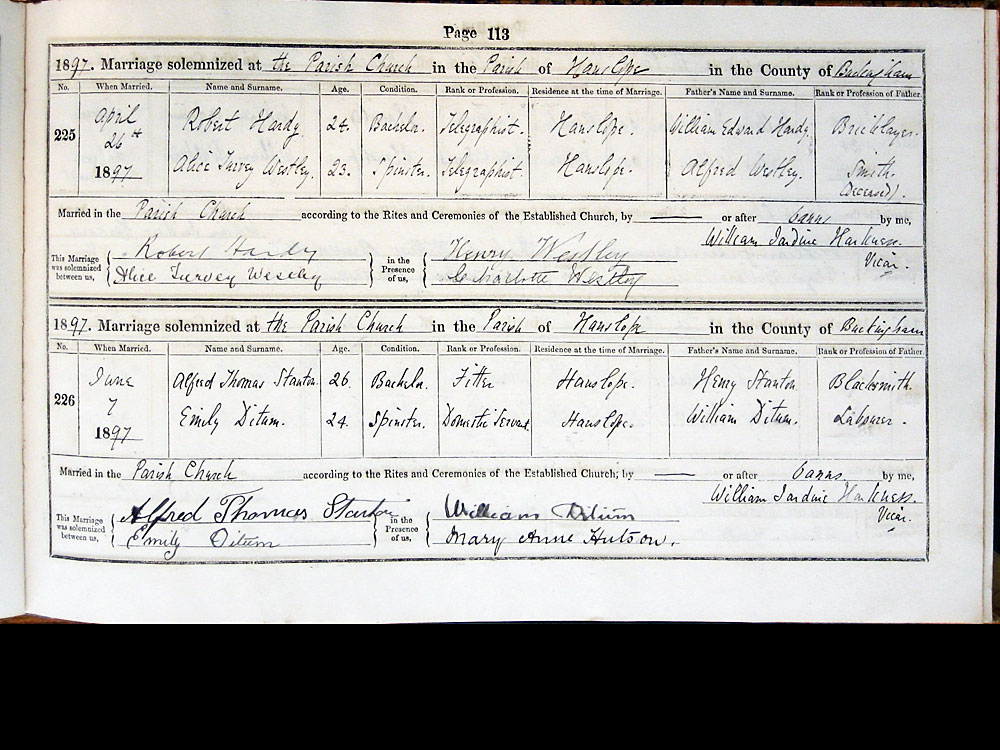 Page 113
1897. Marriage solemnized at the Parish Church in the Parish of Hanslope in the County of Buckingham
No. When Married. Name and Surname. Age. Condition. Rank or Profession. Residence at the time of Marriage. Father's Name and Surname. Rank or Profession of Father.
225 April 26th 1897
Robert Hardy 24. Bachelor. Telegraphist. Hanslope. William Edward Hardy. Bricklayer.
Alice Turvey Westley. 23. Spinster. Telegraphist. Hanslope. Alfred Westley. Smith. (deceased).
Married in the Parish Church according to the Rites and Ceremonies of the Established Church, by —— or after banns by me,
William Jardine Harkness. Vicar.
This Marriage was solemnized between us, { Robert Hardy } in the Presence of us, { Henry Westley
Alice Turvey Westley Charlotte Westley
1897. Marriage solemnized at the Parish Church in the Parish of Hanslope in the County of Buckingham
No. When Married. Name and Surname. Age. Condition. Rank or Profession. Residence at the time of Marriage. Father's Name and Surname. Rank or Profession of Father.
226 June 7 1897
Alfred Thomas Stanton. 26. Bachelor. Fitter Hanslope. Henry Stanton Blacksmith.
Emily Ditum. 24. Spinster. Domestic Servant. Hanslope. William Ditum. Labourer.
Married in the Parish Church according to the Rites and Ceremonies of the Established Church; by —— or after banns by me,
William Jardine Harkness. Vicar.
This Marriage was solemnized between us, { Alfred Thomas Stanton } in the Presence of us, { William Ditum
Emily Ditum Mary Anne Hutson.